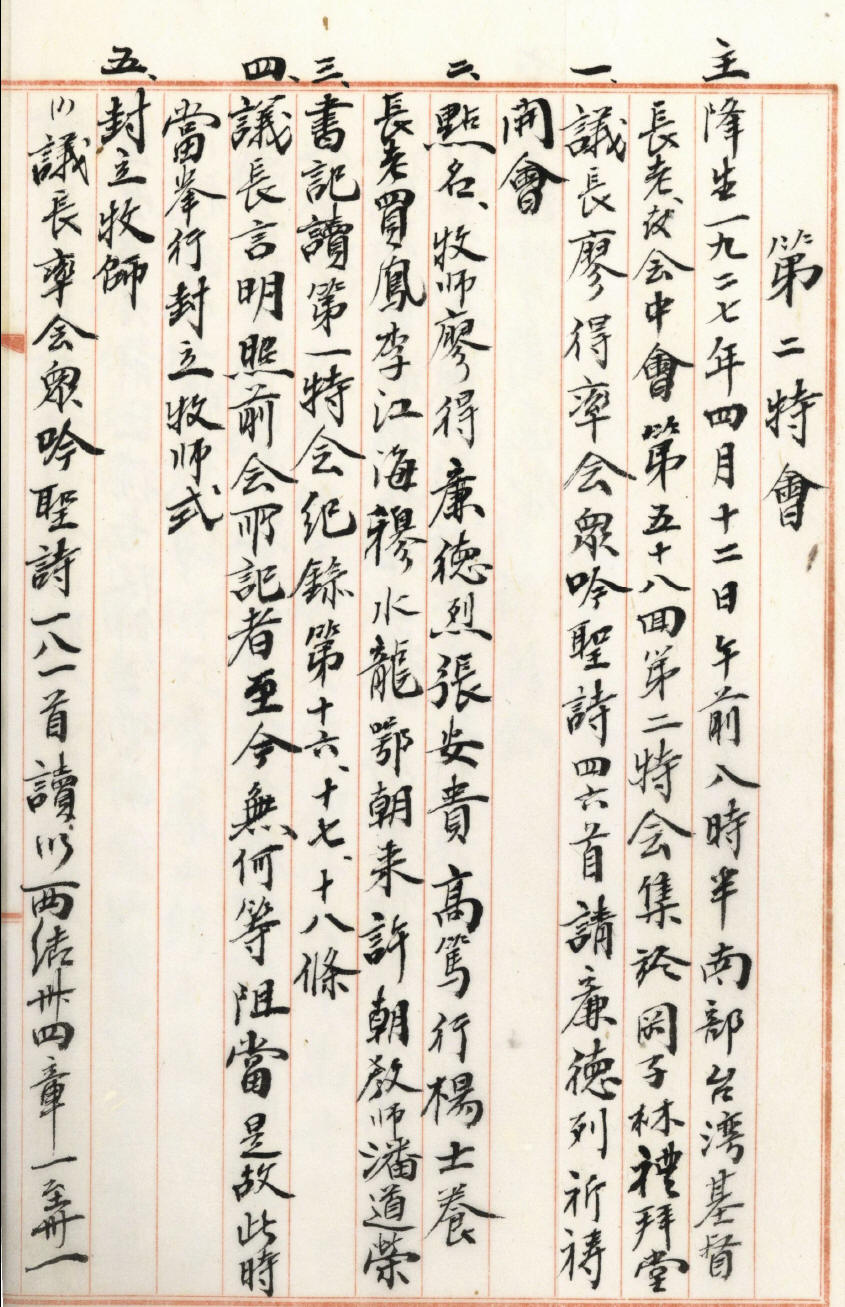 第二特會
主降生一九二七年四月十二日午前八時半南部台湾基督
長老教会中會第五十八囬第二特会集於岡子林禮拜堂
一、議長廖得率会眾吟聖詩四六首請廉德列祈祷
開會
二、點名、牧师廖得廉德烈張安貴高篤行楊士養
長老買鳳李江海穆水龍鄂朝来許朝教师潘道榮
三、書記讀第一特会纪錄第十六、十七、十八條
四、議長言明照前会所記者至今無何等阻當是故此時
當举行封立牧师式
五、封立牧師
(1)議長率会眾吟聖詩一八一首讀以西结卅四章一至卅一